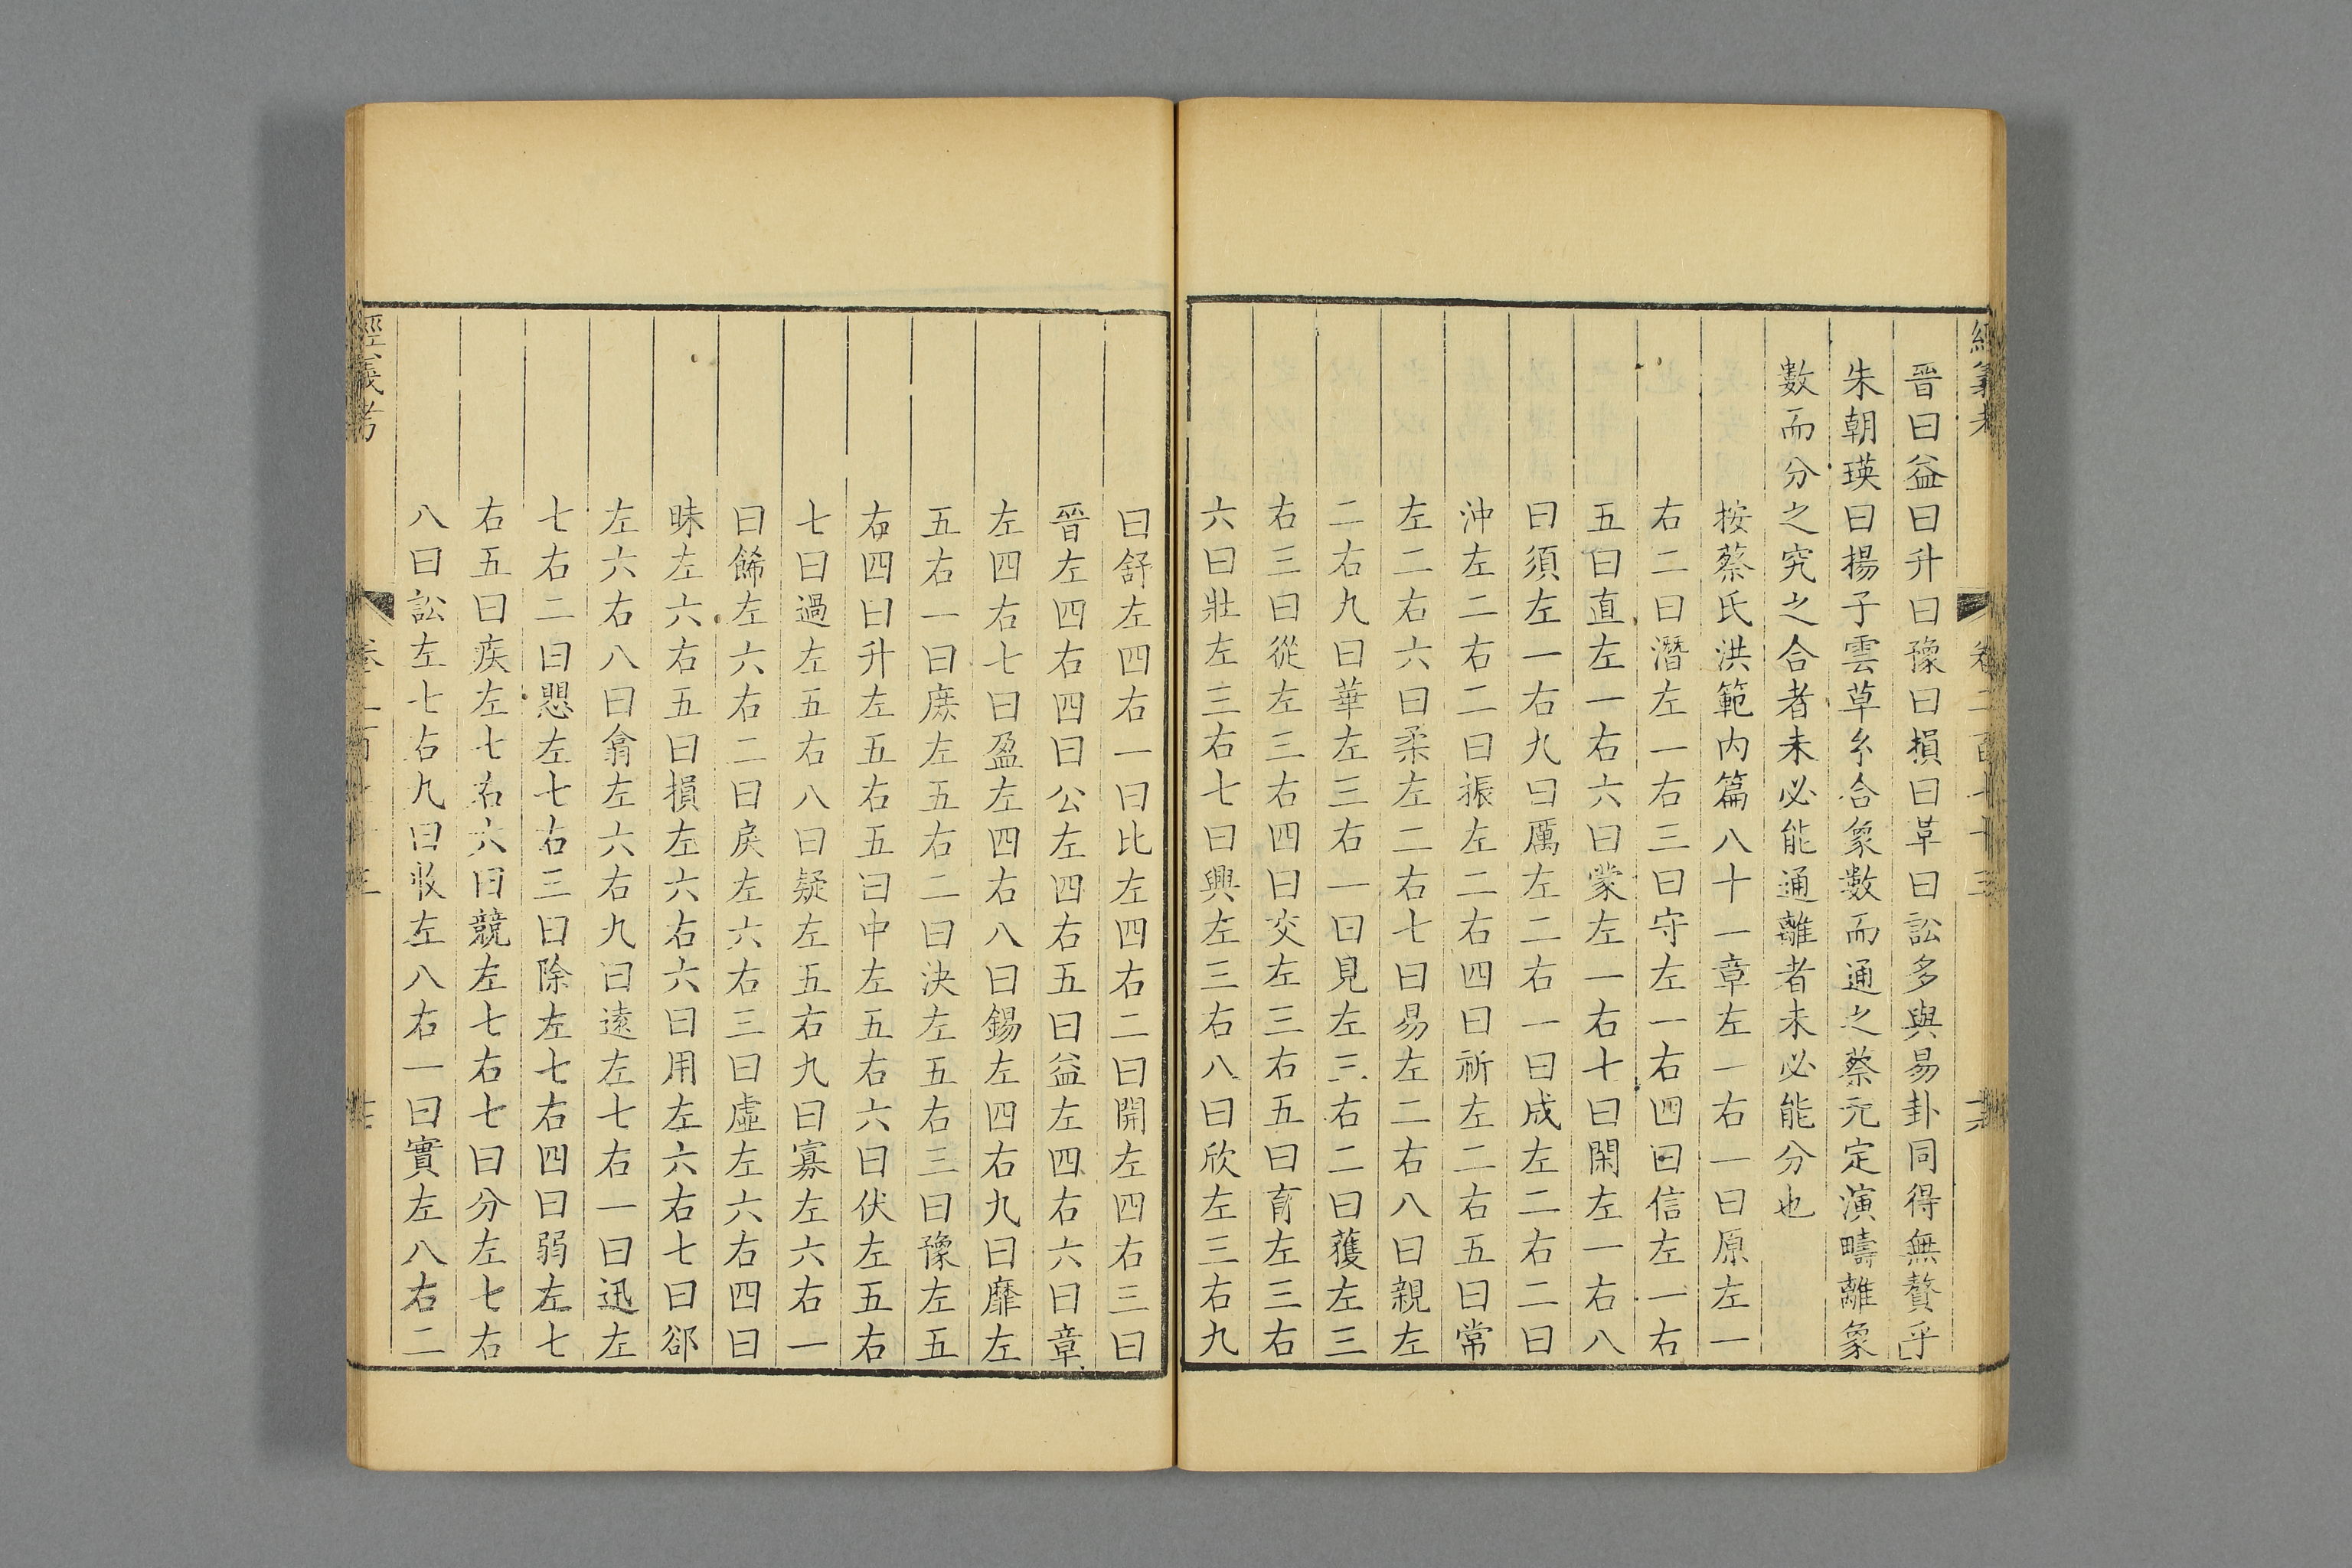 晉曰益曰升曰豫曰損曰革曰訟多與易卦同得無贅乎
朱朝瑛曰揚子雲草𤣥合象數而通之蔡元定演疇離象
數而分之究之合者未必能通離者未必能分也
按蔡氏洪範内篇八十一章左一右一曰原左一
右二曰潛左一右三曰守左一右四曰信左一右
五曰直左一右六曰蒙左一右七曰閑左一右八
曰須左一右九曰厲左二右一曰成左二右二曰
沖左二右二曰振左二右四曰祈左二右五曰常
左二右六曰柔左二右七曰易左二右八曰親左
二右九曰華左三右一曰見左三右二曰獲左三
右三曰從左三右四曰交左三右五曰育左三右
六曰壯左三右七曰興左三右八曰欣左三右九
曰舒左四右一曰比左四右二曰開左四右三曰
晉左四右四曰公左四右五曰益左四右六曰章
左四右七曰盈左四右八曰錫左四右九曰靡左
五右一曰庶左五右二曰決左五右三曰豫左五
右四曰升左五右五曰中左五右六曰伏左五右
七曰過左五右八曰疑左五右九曰寡左六右一
曰餙左六右二曰戾左六右三曰虛左六右四曰
昧左六右五曰損左六右六曰用左六右七曰郤
左六右八曰翕左六右九曰遠左七右一曰迅左
七右二曰愳左七右三曰除左七右四曰弱左七
右五曰疾左七右六曰競左七右七曰分左七右
八曰訟左七右九曰收左八右一曰實左八右二
經義考